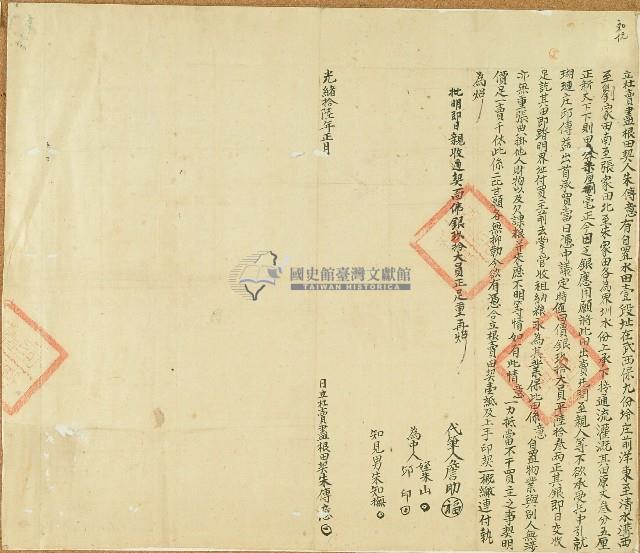 立杜賣盡根田契人朱傳意有自置水田壹段址在武西保九份埤庄前洋東至清水溝西
至劉家田南至張家田北至朱家田各為界圳水份上承下接通流灌溉其田原丈叁分五厘
正新天下下則田 毫正今因乏銀應用願將此田出賣先問至親人等不欲承受托中引就
瑚璉庄邱傳 出首承買當日憑中議定時值田價銀玖拾大員平陸拾叁両正其銀即日交收
足訖其田即踏明界址付買主前去掌管收租納糧永為其業保此田係意自置物業與別人無涉
亦無重張典掛他人財物以及欠課租 來歷不明等情如有此情意一力抵當不干買主之事契明
價足一賣千休此係二比甘願各無抑勒今欲有憑合立根賣田契壹紙及上手印契一概繳連付執
為炤
批明即日親收過契面佛銀玖拾大員正足重再炤
光緒拾陸年正月
代筆人詹助 福
為中人 姪朱山
邱印
知見男朱知撫
日立杜賣盡根田契朱傳意
國史館臺灣文獻館
TAIWAN HISTORICA